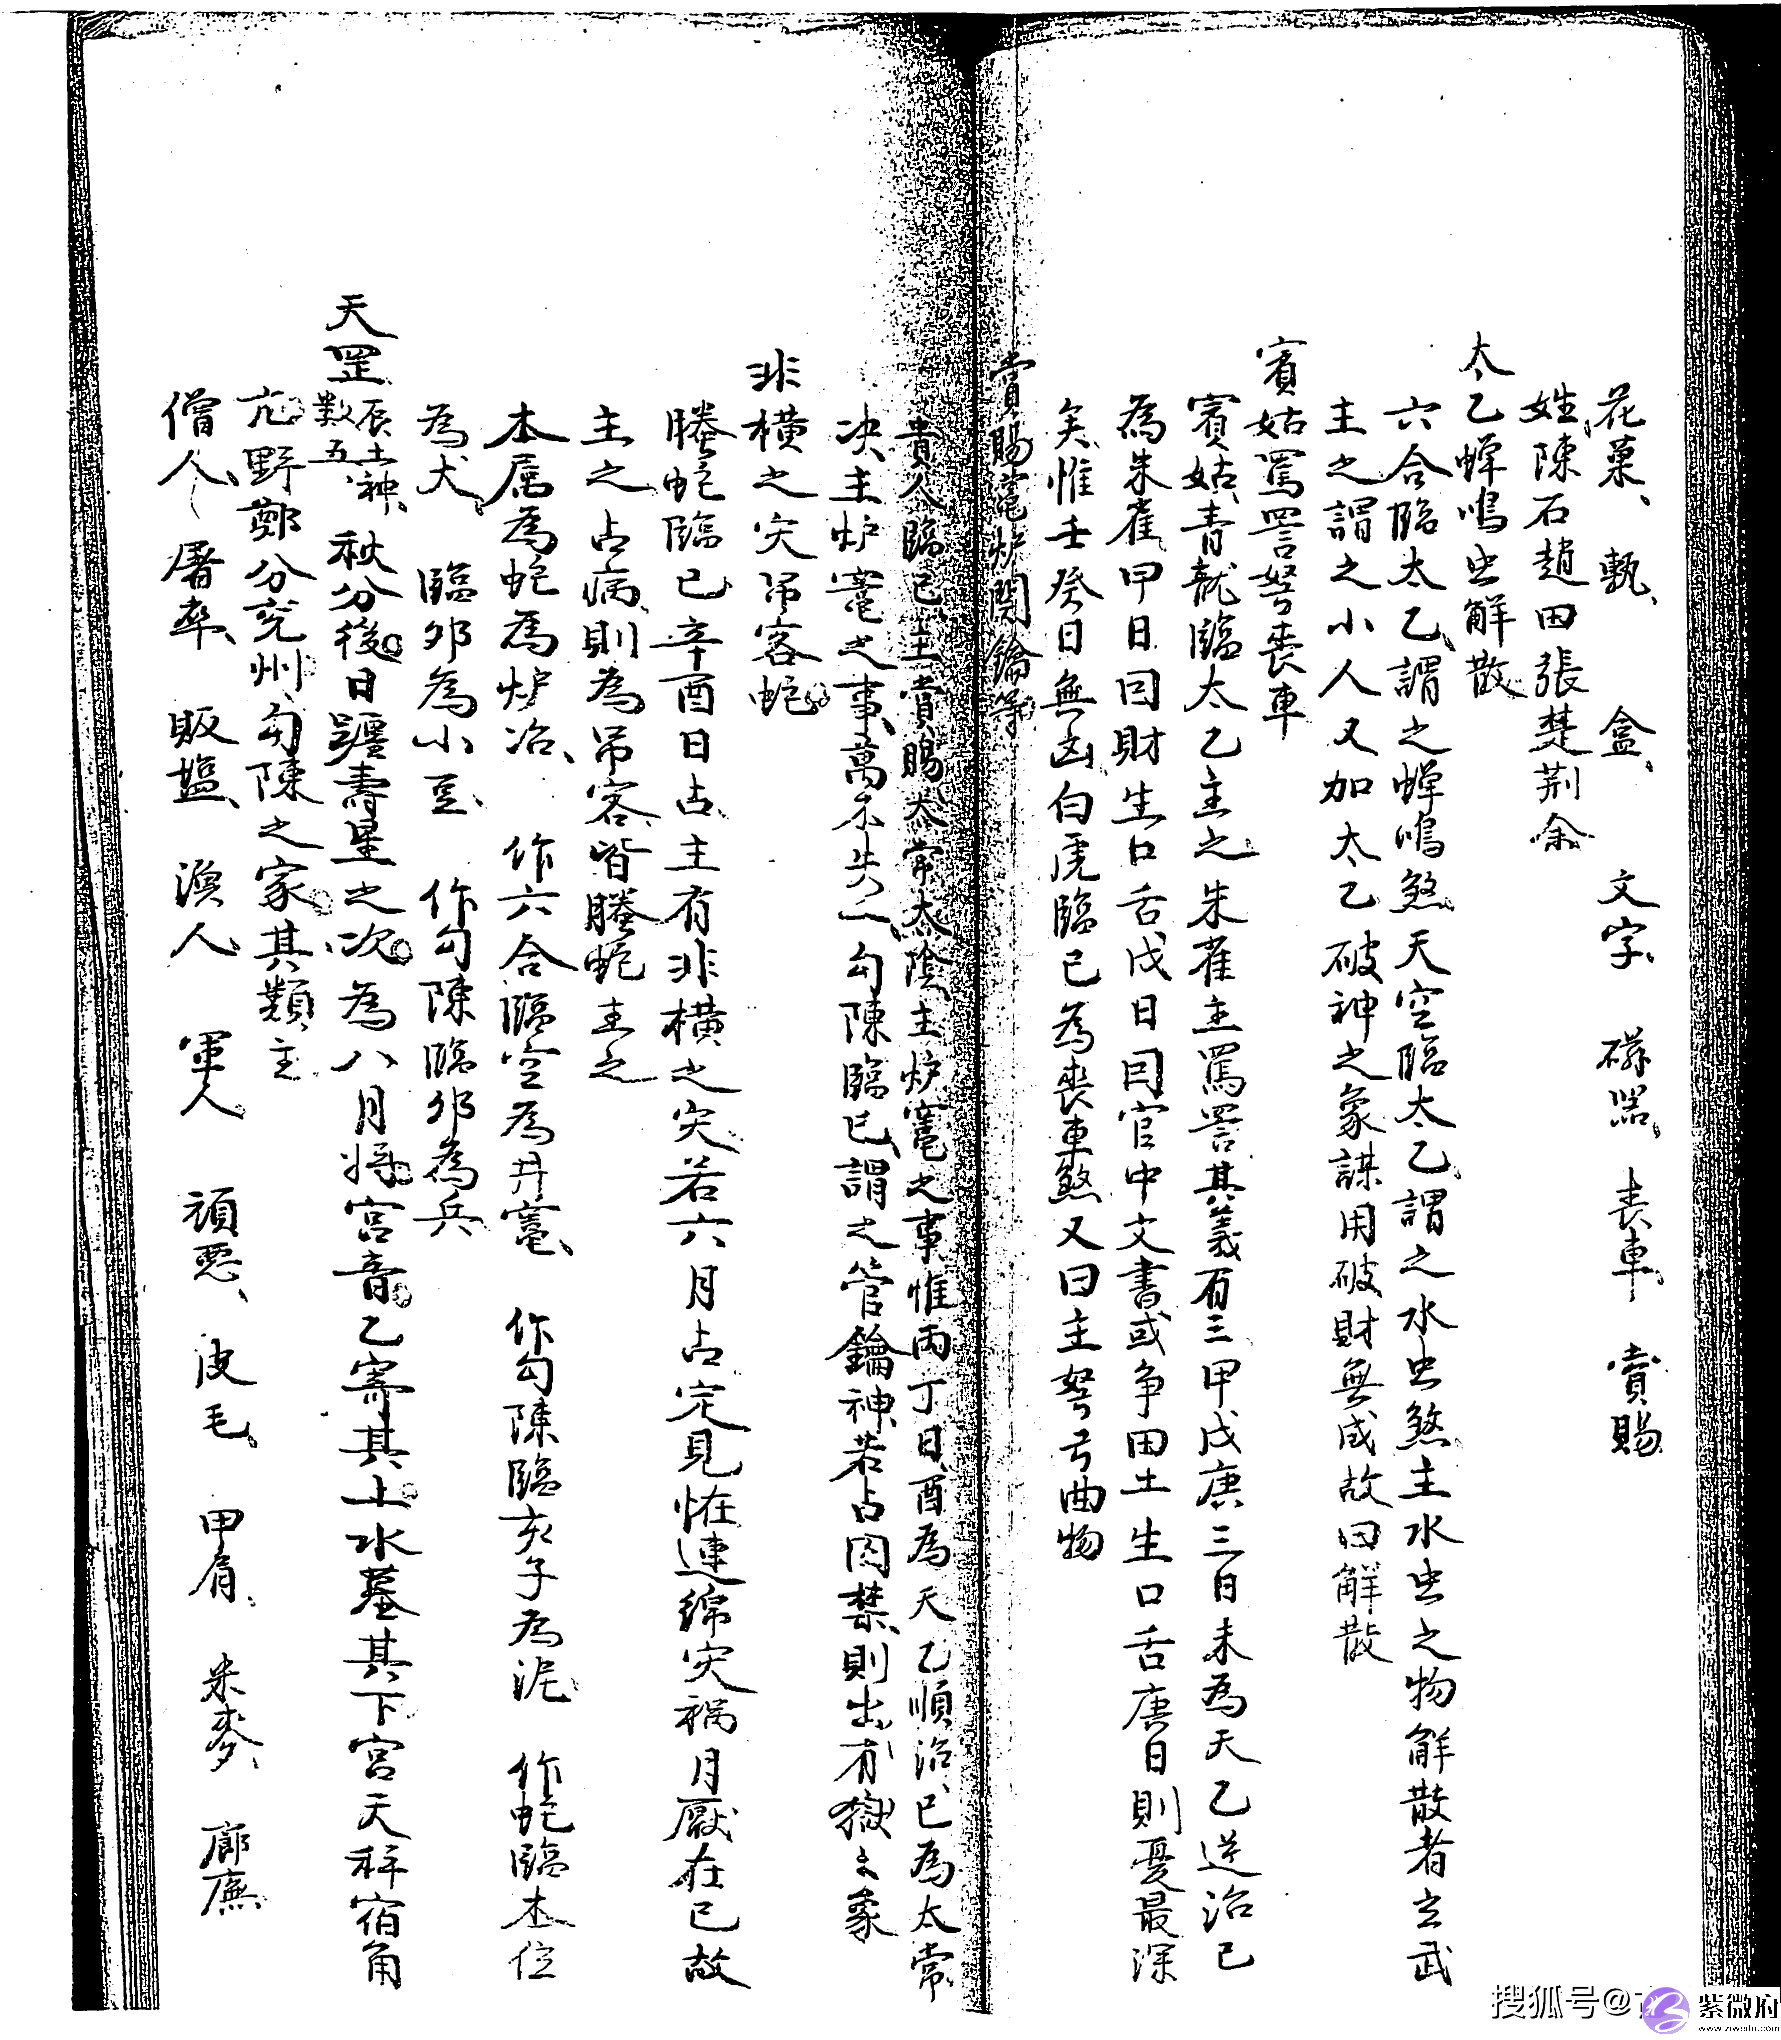 花菓、甎、盒、文字、磁器、喪車、賞賜
姓陳石趙田張楚荆余
太乙蟬鳴虫解散
六合臨太乙謂之蟬鳴煞天空臨太乙謂之水虫煞主水虫之物解散者玄武
主之謂之小人又加太乙破神之象謀用破財無成故曰解散
賓姑罵詈弩喪車
賓姑青龍臨太乙主之朱雀主罵詈其義有三甲戊庚三日未為天乙逆治已
為朱雀甲日因財生口舌戊日因官中文書或爭田土生口舌庚日則憂最深
矣惟壬癸日無凶白虎臨已為喪車煞又曰主弩弓曲物
賞賜竈炉関鑰等
貴人臨已主賞賜太常太陰主炉竈之事惟丙丁日酉為天乙順治已為太常
决主炉竈之事萬不失一勾陳臨已謂之管鑰神若占囚禁則出有獄之象
非横之灾吊客蛇
螣蛇臨已辛酉日占主有非横之灾若六月占定見怪連綿灾禍月厭在已故
主之占病則為吊客皆螣蛇主之
本属為蛇為炉冶、作六合臨空為井竈、作勾陳臨亥子為泥 作蛇臨本位
為犬 臨卯為小豆 作勾陳臨卯為兵
天罡辰土神數五、秋分後日躔壽星之次為八月将宫音乙寄其上水墓其下宫天秤宿角
亢野鄭分兖州勾陳之家其類主
僧人、屠宰、販塩、漁人 軍人 頑惡、皮毛、甲胄、米麥、廊廡
搜狐号@
紫微府
www.ziweifu.com